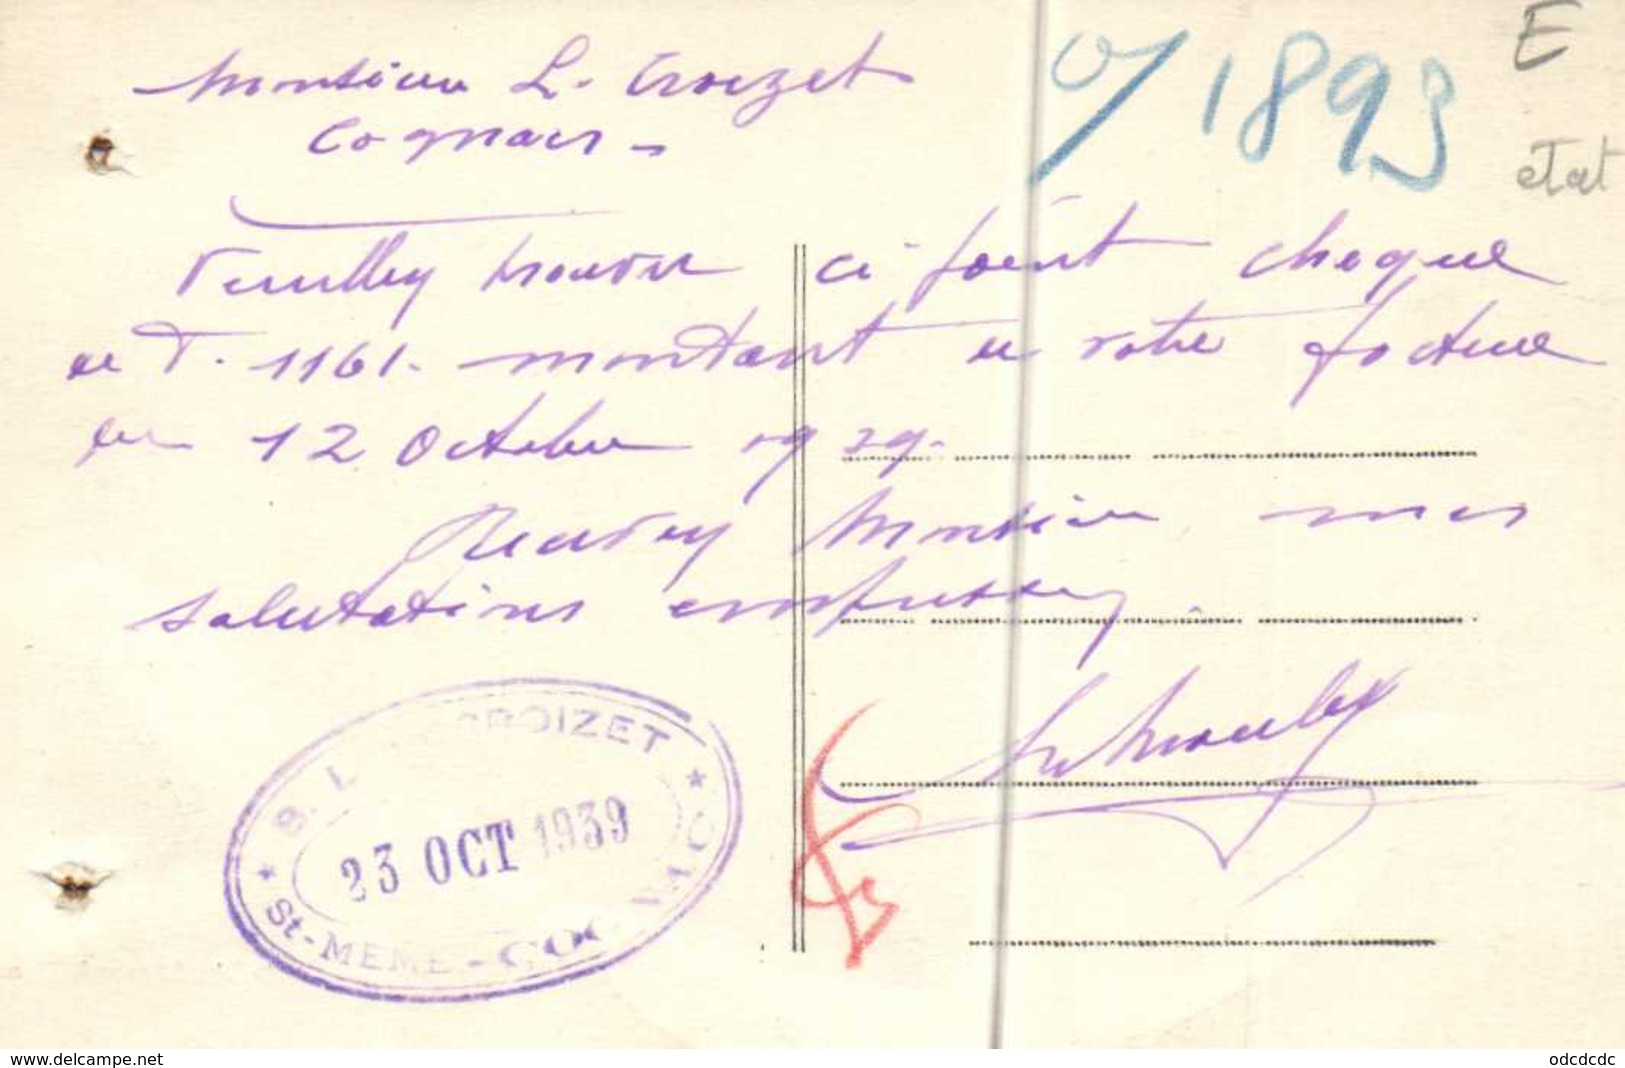 Monsieur L. Croizet
Cognac -
Veuillez trouver ci joint chèque
de F. 1161. montant de votre facture
du 12 Octobre 1939.
Recevez Monsieur mes
salutations empressées
O/1893
E
etat
B. L. CROIZET
23 OCT 1939
St-MEME-COGNAC
www.delcampe.net
odcdcdc